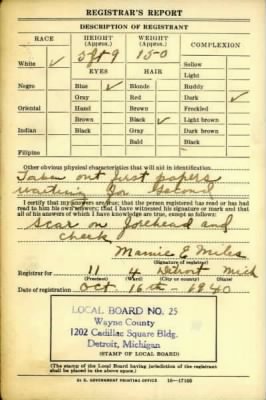 REGISTRAR'S REPORT
DESCRIPTION OF REGISTRANT
RACE HEIGHT (Approx.) WEIGHT (Approx.) COMPLEXION
White ✓ 5 ft 9 150 Sallow
EYES HAIR Light
Negro Blue ✓ Blonde Ruddy
Gray Red Dark ✓
Oriental Hazel Brown Freckled
Brown Black ✓ Light brown
Indian Black Gray Dark brown
Bald Black
Filipino
Other obvious physical characteristics that will aid in identification.
Taken out first papers
waiting for Second
I certify that my answers are true; that the person registered has read or has had
read to him his own answers; that I have witnessed his signature or mark and that
all of his answers of which I have knowledge are true, except as follows:
Scar on forehead and
cheek
Mamie E. Miles
(Signature of registrar)
Registrar for 11 4 Detroit Mich
(Precinct) (Ward) (City or county) (State)
Date of registration Oct. 16th - 1940
LOCAL BOARD NO. 25
Wayne County
1202 Cadillac Square Bldg.
Detroit, Michigan
(STAMP OF LOCAL BOARD)
(The stamp of the Local Board having jurisdiction of the registrant
shall be placed in the above space.)
U. S. GOVERNMENT PRINTING OFFICE 16—17105